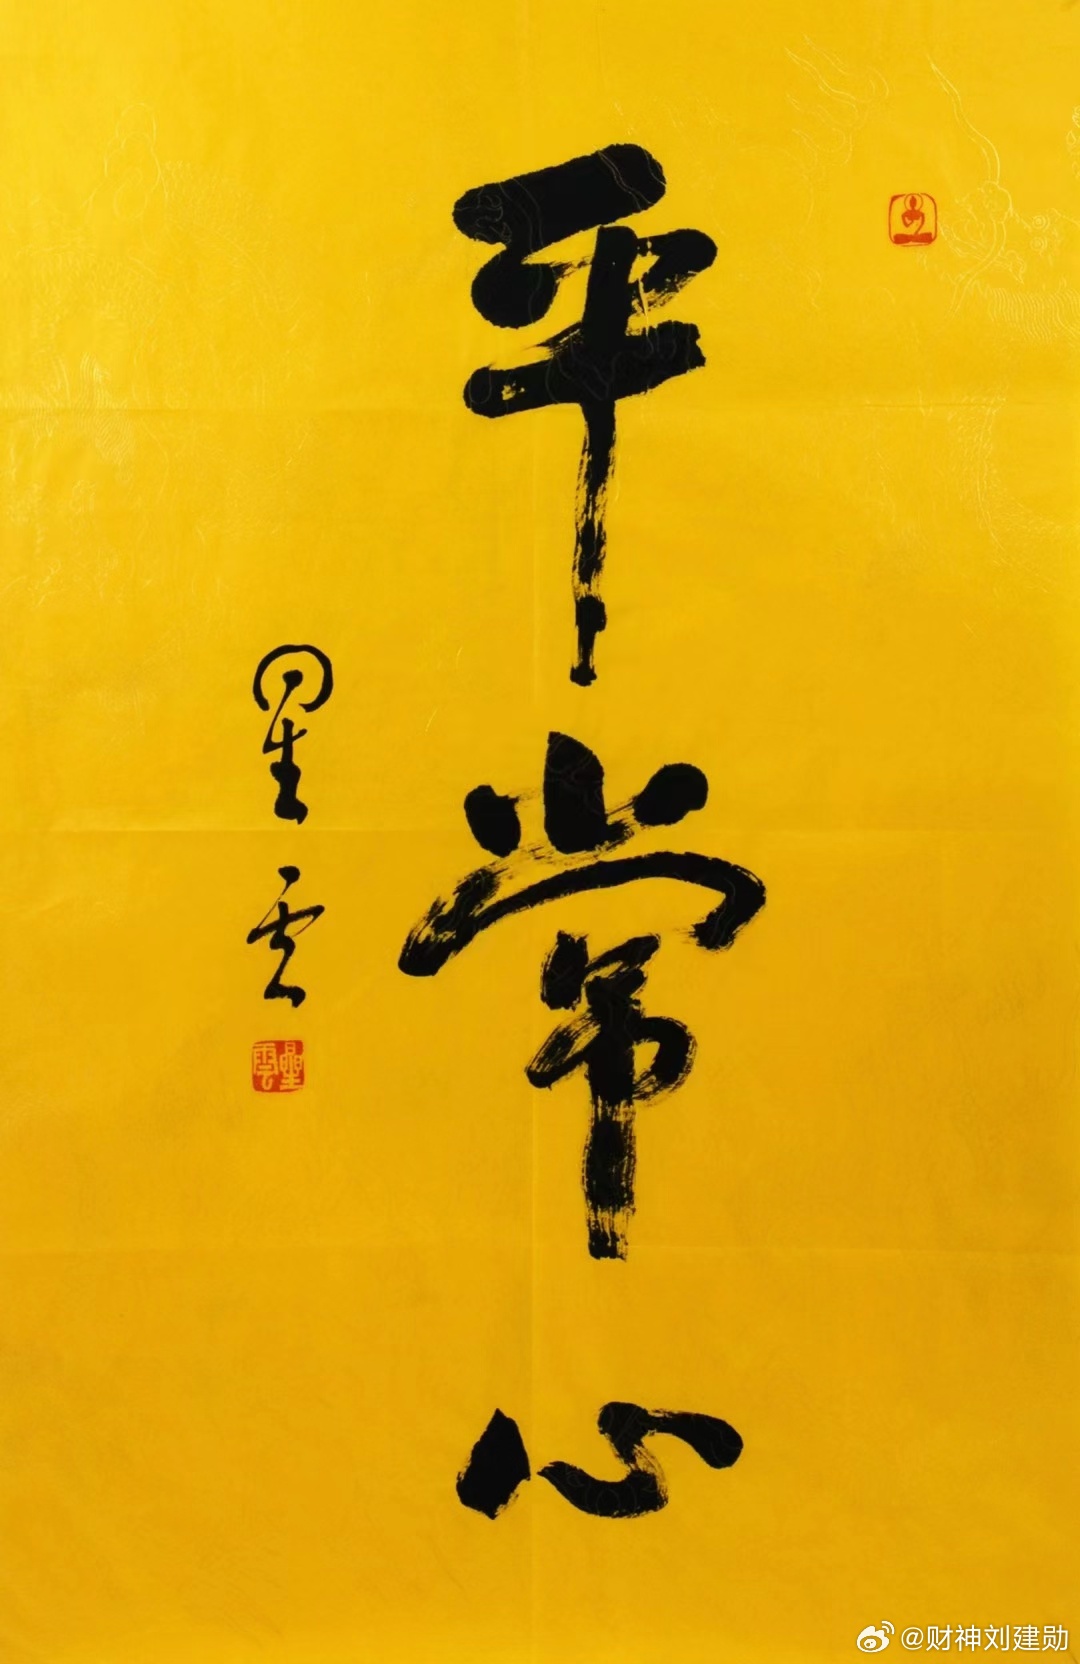 平常心
星云
星雲
@财神刘建勋